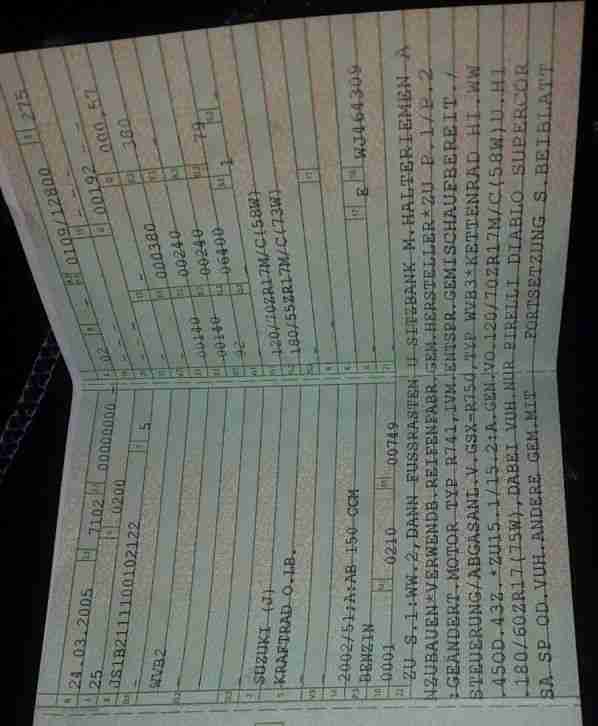 24.03.2005 7102 00000000 -
25 0200
JS1B2111100102122 5
-
WVB2
-
-
SUZUKI (J)
KRAFTRAD O.LB.
-
2002/51;A:AB 150 CCM
BENZIN
0001 0210 00749
02 - - 0109/12800 275
- - - 00192 000,57
- - - 380
- 000380
- 00240
00140 00240 79 -
00140 06400 1
92
120/70ZR17M/C(58W)
180/55ZR17M/C(73W)
-
-
- E WJ464309
ZU S.1:WW.2,DANN FUSSRASTEN U SITZBANK M.HALTERIEMEN A
NZUBAUEN*VERWENDB.REIFENFABR.GEM.HERSTELLER*ZU P.1/P.2
:GEÄNDERT.MOTOR TYP R741,IVM.ENTSPR.GEMISCHAUFBEREIT./
STEUERUNG/ABGASANL.V.GSX-R750,TYP WVB3*KETTENRAD HI.WW
.45OD.43Z.*ZU15.1/15.2:A.GEN.VO.120/70ZR17M/C(58W)U.HI
.180/60ZR17(75W),DABEI VUH.NUR PIRELLI DIABLO SUPERCOR
SA SP OD.VUH.ANDERE GEM.MIT FORTSETZUNG S.BEIBLATT